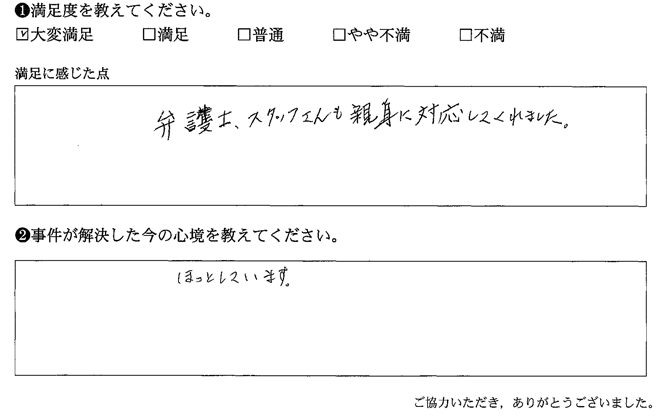 ❶満足度を教えてください。
☑大変満足 □満足 □普通 □やや不満 □不満
満足に感じた点
弁護士、スタッフさんも親身に対応してくれました。
❷事件が解決した今の心境を教えてください。
ほっとしています。
ご協力いただき，ありがとうございました。